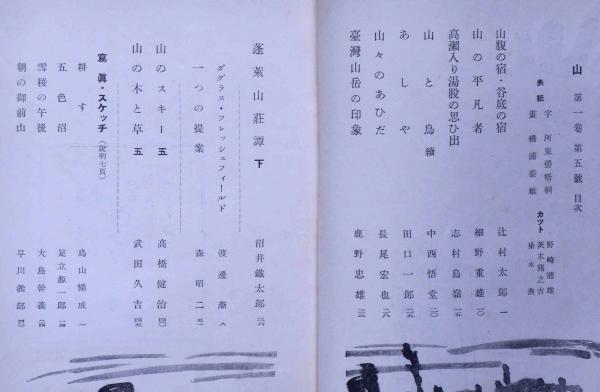 山 第一卷 第五號 目次
表紙 字 河東碧梧桐
畫 橋浦泰雄
カツト 野崎龍雄
茨木猪之吉
山腹の宿・谷底の宿 辻村太郎 一
山の平凡者 細野重雄
高瀬入り湯股の思ひ出 志村烏嶺
山と鳥 續 中西悟堂
あしや 田口一郎
山々のあひだ 長尾宏也
臺灣山岳の印象 鹿野忠雄
蓬萊山莊譚 下 沼井鐵太郎
ダグラス・フレッシュフィールド 渡邊漸
一つの提案 森昭二
山のスキー 五 高橋健治
山の木と草 五 武田久吉
寫眞・スケッチ (説明七頁)
耕す 鳥山悌成
五色沼 足立源一郎
雪稜の午後 大島幹義
朝の御前山 早川義郎